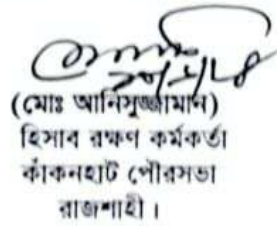 (মোঃ আনিসুজ্জামান)
হিসাব রক্ষণ কর্মকর্তা
কাঁকনহাট পৌরসভা
রাজশাহী।